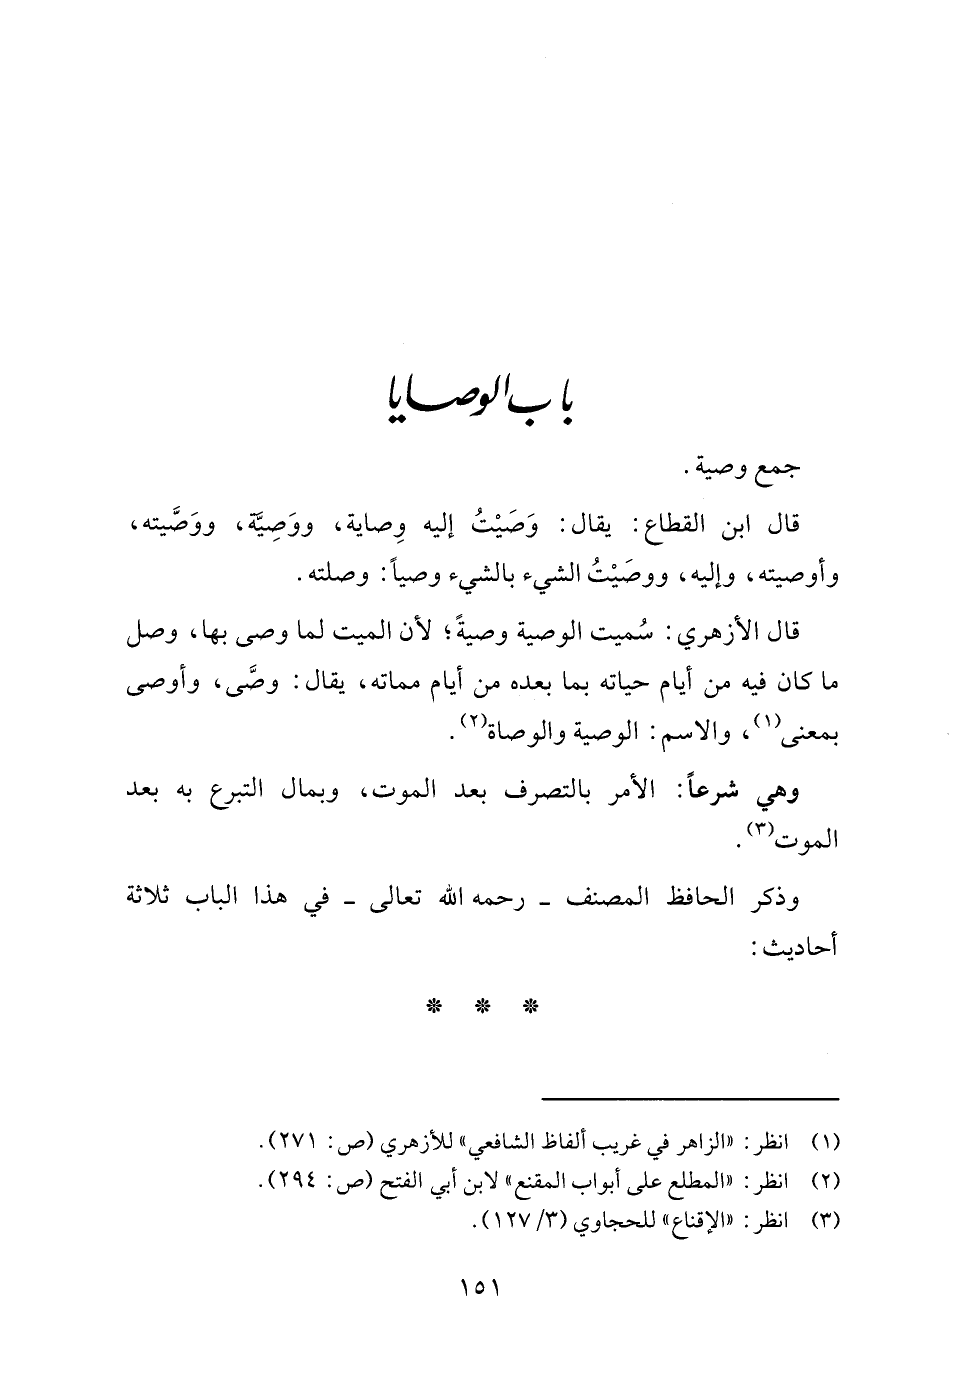 باب الوصايا
جمع وصية .
قال ابن القطاع : يقال : وَصَيْتُ إليه وِصاية ، ووَصِيَّة ، ووَصَّيته ،
وأوصيته ، وإليه ، ووصَيْتُ الشيء بالشيء وصياً : وصلته .
قال الأزهري : سُميت الوصية وصيةً ؛ لأن الميت لما وصى بها ، وصل
ما كان فيه من أيام حياته بما بعده من أيام مماته ، يقال : وصَّى ، وأوصى
بمعنى(١) ، والاسم : الوصية والوصاة(٢) .
وهي شرعاً : الأمر بالتصرف بعد الموت ، وبمال التبرع به بعد
الموت(٣) .
وذكر الحافظ المصنف ـ رحمه الله تعالى ـ في هذا الباب ثلاثة
أحاديث :
* * *
(١) انظر : «الزاهر في غريب ألفاظ الشافعي» للأزهري (ص : ٢٧١) .
(٢) انظر : «المطلع على أبواب المقنع» لابن أبي الفتح (ص : ٢٩٤) .
(٣) انظر : «الإقناع» للحجاوي (٣/ ١٢٧) .
١٥١